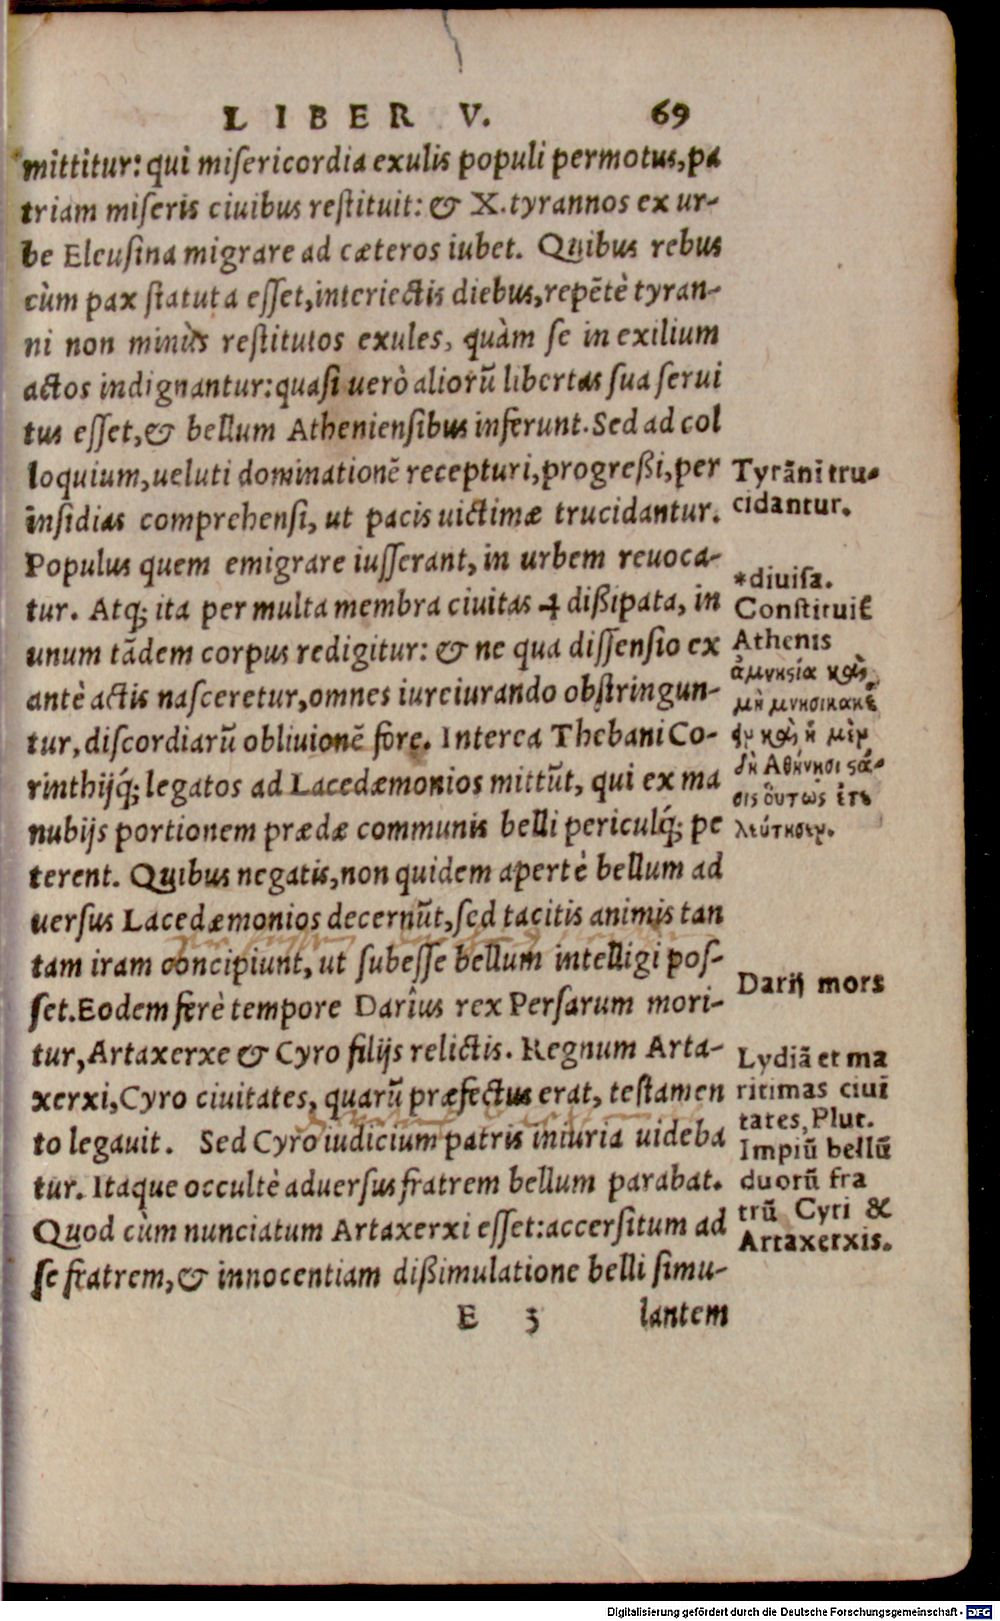 LIBER V. 69
mittitur: qui misericordia exulis populi permotus, pa
triam miseris ciuibus restituit: & X. tyrannos ex ur-
be Eleusina migrare ad cæteros iubet. Quibus rebus
cùm pax statuta esset, interiectis diebus, repẽtè tyran-
ni non minùs restitutos exules, quàm se in exilium
actos indignantur: quasi uerò aliorũ libertas sua serui
tus esset, & bellum Atheniensibus inferunt. Sed ad col
loquium, ueluti dominationẽ recepturi, progreßi, per
insidias comprehensi, ut pacis uictimæ trucidantur.
Populus quem emigrare iusserant, in urbem reuoca-
tur. Atq; ita per multa membra ciuitas dißipata, in
unum tãdem corpus redigitur: & ne qua dissensio ex
antè actis nasceretur, omnes iureiurando obstringun-
tur, discordiarũ obliuionẽ fore. Interea Thebani Co-
rinthijq́; legatos ad Lacedæmonios mittũt, qui ex ma
nubijs portionem prædæ communis belli periculiq́; pe
terent. Quibus negatis, non quidem apertè bellum ad
uersus Lacedæmonios decernũt, sed tacitis animis tan
tam iram concipiunt, ut subesse bellum intelligi pos-
set. Eodem ferè tempore Darius rex Persarum mori-
tur, Artaxerxe & Cyro filijs relictis. Regnum Arta-
xerxi, Cyro ciuitates, quarũ præfectus erat, testamen
to legauit. Sed Cyro iudicium patris iniuria uideba
tur. Itaque occultè aduersus fratrem bellum parabat.
Quod cùm nunciatum Artaxerxi esset: accersitum ad
se fratrem, & innocentiam dißimulatione belli simu-
E 3 lantem
Tyrãnĩ tru-
cidantur.
*diuisa.
Constituit̃
Athenis
ἀμνηςία καὶ
μὴ μνησικακε͂
ῃν καὶ ἡ μὲν
δὴ Ἀθήνησι ςά-
σις οὕτως ἐτε
λεύτησεν.
Darij mors
Lydiã et ma
ritimas ciui
tates, Plut.
Impiũ bellũ
duorũ fra
trũ Cyri &
Artaxerxis.
Digitalisierung gefördert durch die Deutsche Forschungsgemeinschaft - DFG